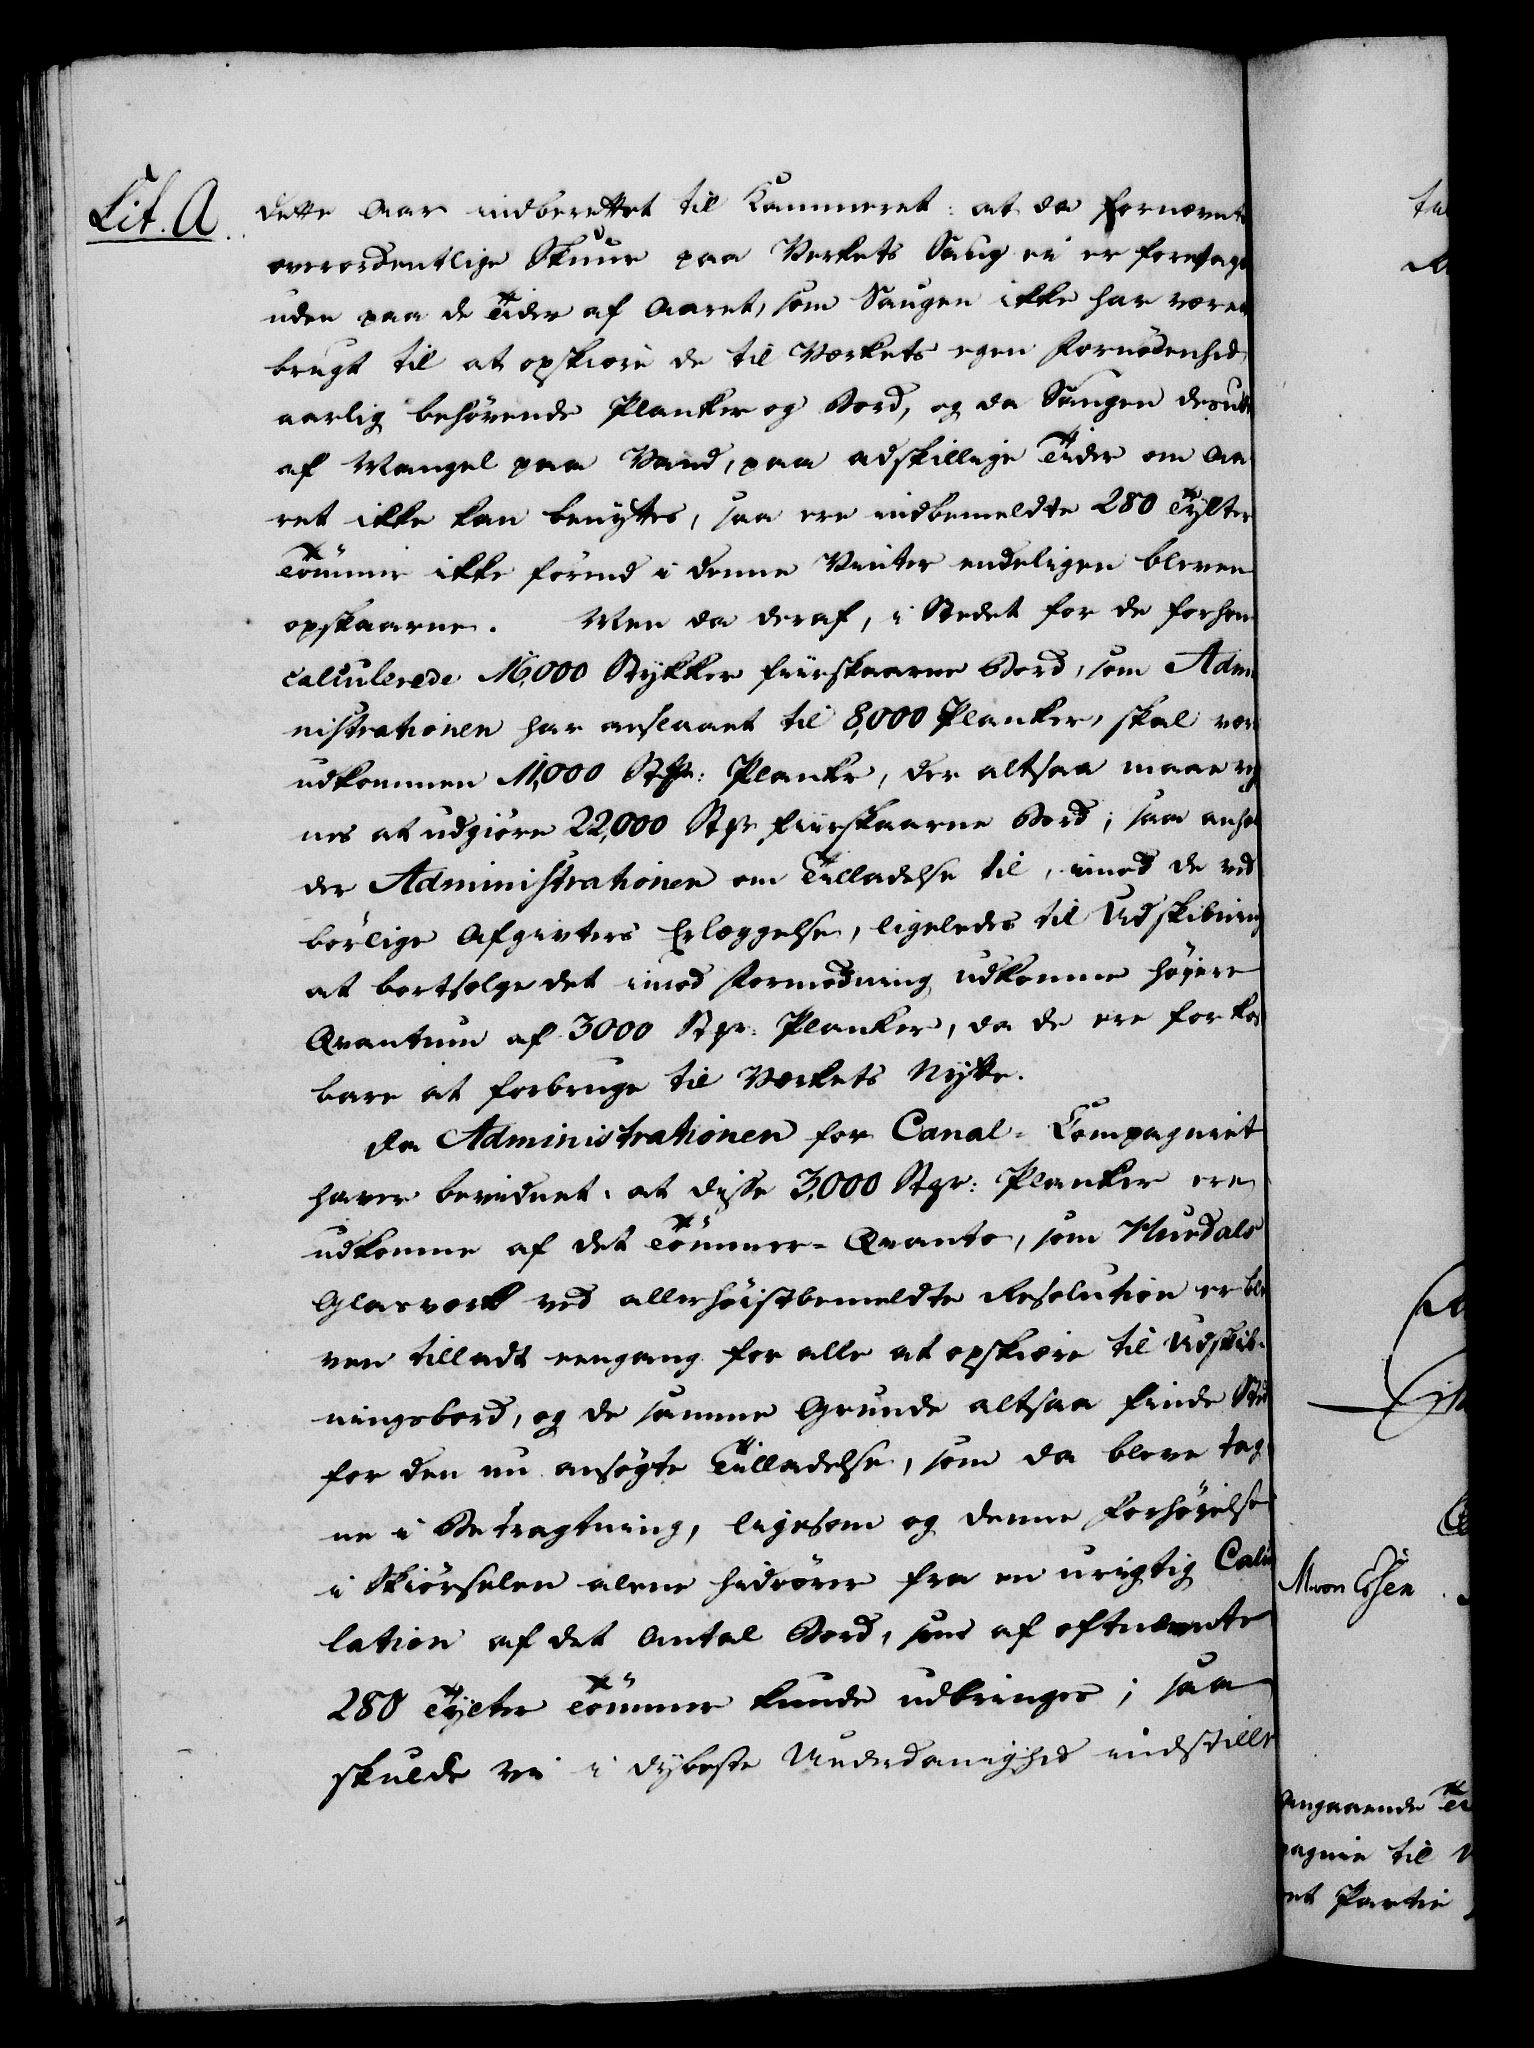 Lit. A.
dette Aar indberettet til Kammeret: at da fornævnte
overordentlige Skuur paa Verkets Saug ei er foretaget
uden paa de Tider af Aaret, som Saugen ikke har været
brugt til at opskiære de til Værkets egen Fornödenhed
aarlig behövende Planker og Bord, og da Saugen desuden
af Mangel paa Vand, paa adskillige Tider om Aa
ret ikke kan benyttes, saa ere indbemeldte 280 Tylter
Tömmer ikke förend i denne Vinter endeligen bleven
opskaarne. Men da deraf, i Stedet for de forhen
calculerede 16,000 Stykker fiirskaarne Bord, som Admi
nistrationen har anslaaet til 8,000 Planker, skal være
udkommen 11,000 Stkr: Planker, der altsaa maae reg
nes at udgiöre 22,000 Stkr fiirskaarne Bord; saa anhol
der Administrationen om Tilladelse til, imod de ved
börlige Afgivters Erlæggelse, ligeledes til Udskibning
at bortsælge det imod Formodning udkomne höyere
Qvantum af 3000 Stkr. Planker, da de ere for kost
bare at forbruge til Værkets Nytte.
Da Administrationen for Canal-Compagniet
haver bevidnet: at disse 3,000 Stkr: Planker ere
udkomne af det Tömmer-Qvanto, som Hurdals
Glasværk ved allerhöistbemeldte Resolution er ble
ven tilladt eengang for alle at opskiære til Udskib-
ningsbord, og de samme Grunde altsaa finde Sted
for den nu ansögte Tilladelse, som da bleve tag
ne i Betragtning, ligesom og denne Forhöyelse
i Skiörselen alene hidrörer fra en urigtig Calcu
lation af det Antal Bord, som af oftnævnte
280 Tylter Tömmer kunde udbringes; saa
skulde vi i dybeste Underdanighed indstille
M. von Essen
Angaaende
pagnie til
et Partie